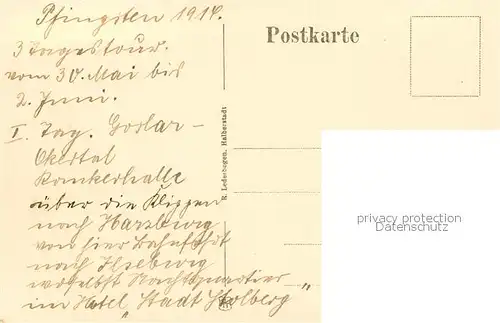 Pfingsten 1914.
3 Tagestour.
vom 30. Mai bis
2. Juni.
I. Tag. Goslar -
Okertal
Romkerhalle
über die Klippen
nach Harzburg
von hier Bahnfahrt
nach Ilseburg
woselbst Nachtquartier
im Hotel „Stadt Stolberg"
Postkarte
R. Lederbogen, Halberstadt
privacy protection
Datenschutz